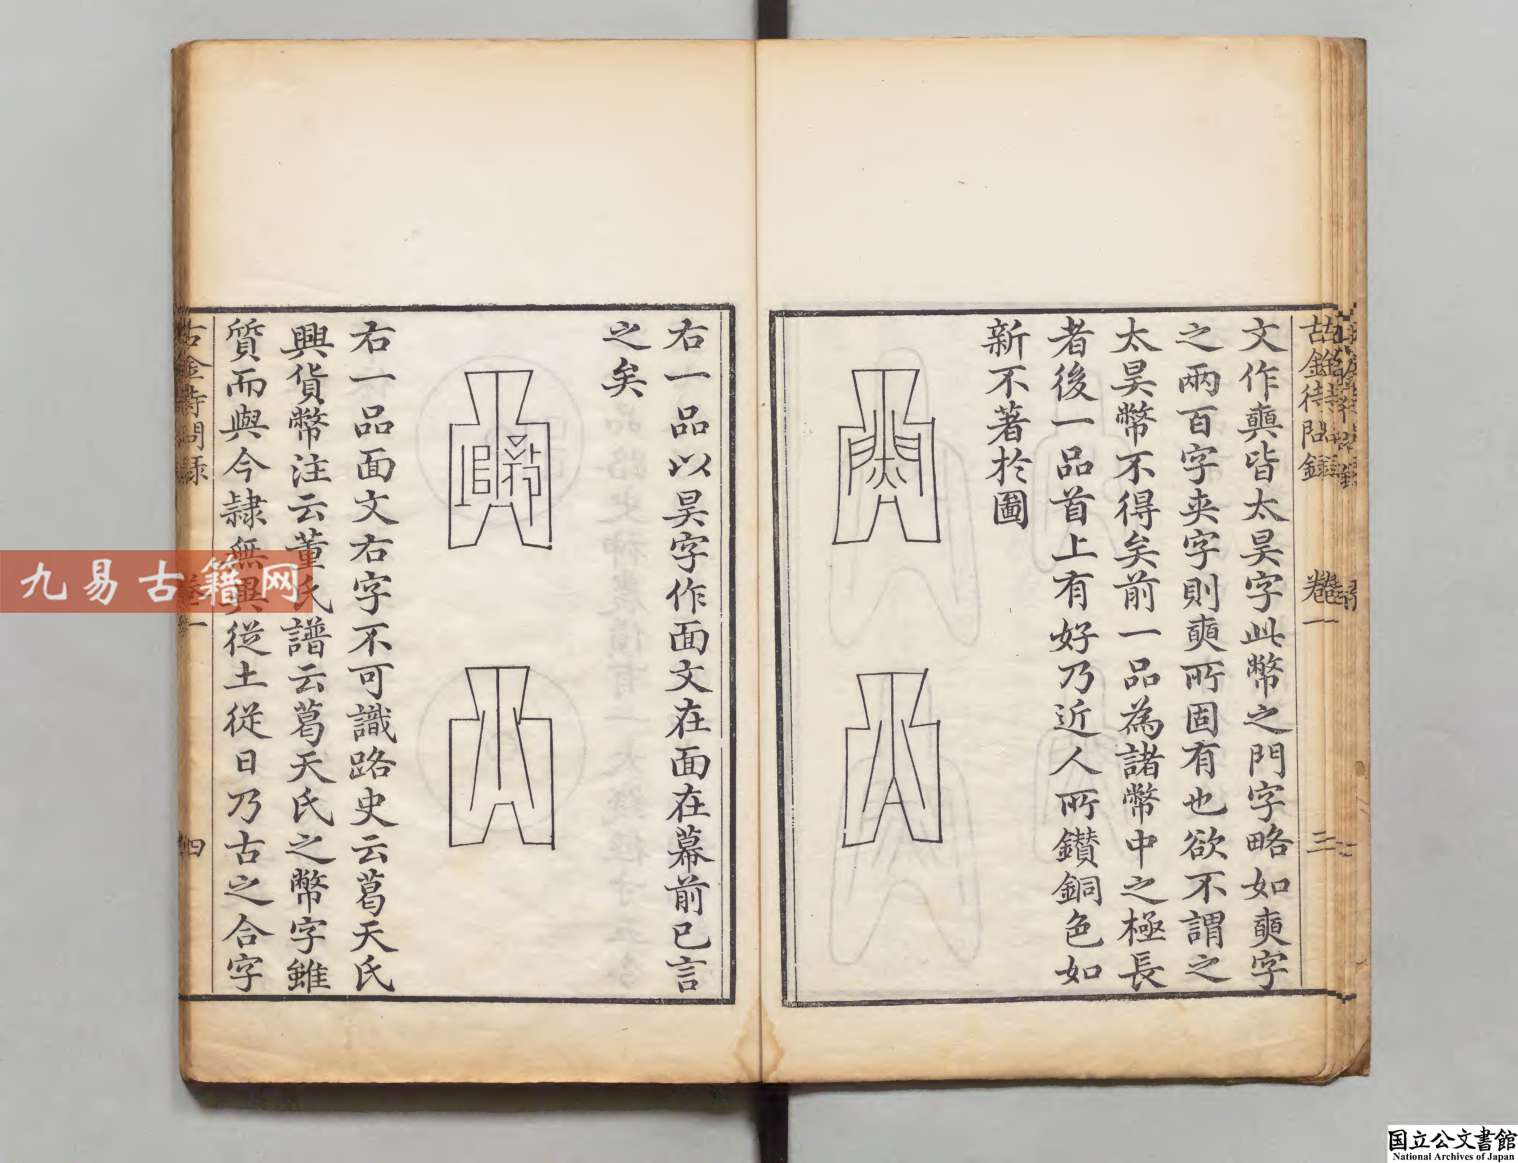 古金待問錄 卷一 三
文作奭皆太昊字此幣之門字略如奭字
之兩百字夾字則奭所固有也欲不謂之
太昊幣不得矣前一品為諸幣中之極長
者後一品首上有好乃近人所鑚銅色如
新不著於圖
右一品以昊字作面文在面在幕前已言
之矣
右一品面文右字不可識路史云葛天氏
興貨幣注云董氏譜云葛天氏之幣字雖
質而與今隷無異從土從日乃古之合字
古金待問錄 卷一 四
九易古籍网
国立公文書館
National Archives of Japan